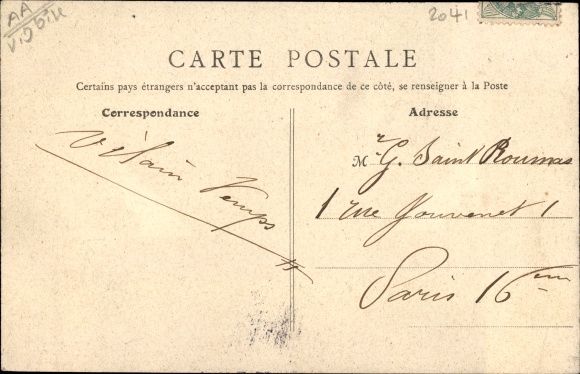 AA
2041
CARTE POSTALE
Certains pays étrangers n'acceptant pas la correspondance de ce côté, se renseigner à la Poste
Correspondance
Adresse
Vilain Temps
Mr G. Saint Roumas
1 rue Jouvenet 1
Paris 16ème